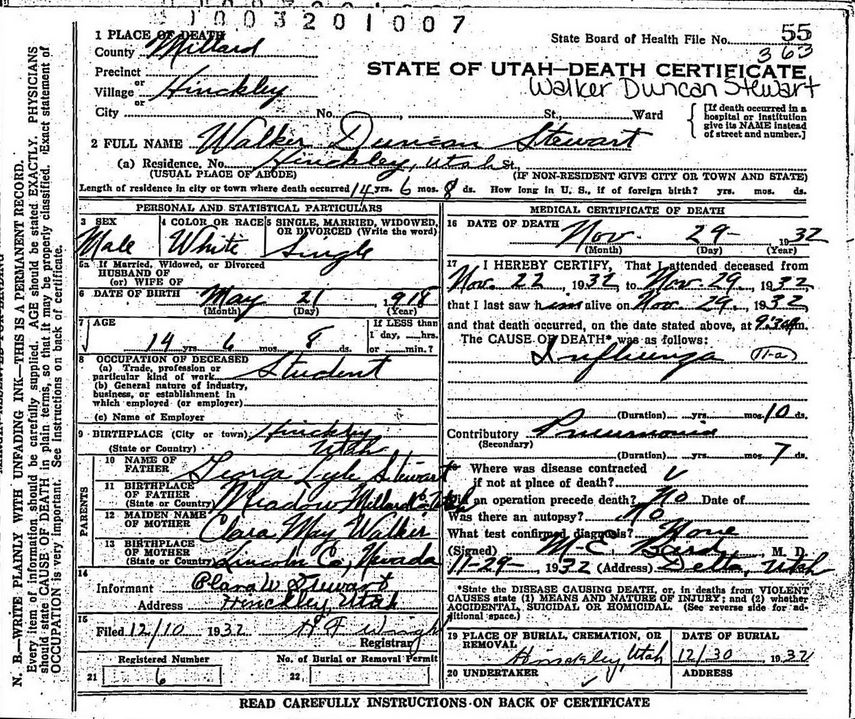 1003201007
1 PLACE OF DEATH
County Millard
State Board of Health File No. 55
363
Precinct
or
Village Hinckley
or
City No. St., Ward
STATE OF UTAH—DEATH CERTIFICATE
Walker Duncan Stewart
[If death occurred in a hospital or institution give its NAME instead of street and number.]
2 FULL NAME Walker Duncan Stewart
(a) Residence. No. Hinckley, Utah St.
(USUAL PLACE OF ABODE) (IF NON-RESIDENT GIVE CITY OR TOWN AND STATE)
Length of residence in city or town where death occurred 14 yrs. 6 mos. 8 ds. How long in U. S., if of foreign birth? yrs. mos. ds.
PERSONAL AND STATISTICAL PARTICULARS
3 SEX Male
4 COLOR OR RACE White
5 SINGLE, MARRIED, WIDOWED, OR DIVORCED (Write the word) Single
5a If Married, Widowed, or Divorced
HUSBAND OF
(or) WIFE OF
6 DATE OF BIRTH May 21 1918
(Month) (Day) (Year)
7 AGE
14 yrs. 6 mos. 8 ds.
If LESS than 1 day, hrs. or min.?
8 OCCUPATION OF DECEASED
(a) Trade, profession or particular kind of work Student
(b) General nature of industry, business, or establishment in which employed (or employer)
(c) Name of Employer
9 BIRTHPLACE (City or town) Hinckley
(State or Country) Utah
PARENTS
10 NAME OF FATHER George Lyle Stewart
11 BIRTHPLACE OF FATHER (State or Country) Meadow Millard Co Utah
12 MAIDEN NAME OF MOTHER Clara May Walker
13 BIRTHPLACE OF MOTHER (State or Country) Lincoln Co, Nevada
14
Informant Clara W Stewart
Address Hinckley, Utah
15
Filed 12/10 1932 H F Wright
Registrar
Registered Number
21 6
No. of Burial or Removal Permit
22
MEDICAL CERTIFICATE OF DEATH
16 DATE OF DEATH Nov. 29- 1932
(Month) (Day) (Year)
17 I HEREBY CERTIFY, That I attended deceased from
Nov. 22, 1932 to Nov. 29, 1932
that I last saw him alive on Nov. 29, 1932
and that death occurred, on the date stated above, at 9:30 m.
The CAUSE OF DEATH* was as follows:
Influenza 11-a
(Duration) yrs. mos. 10 ds.
Contributory Pneumonia
(Secondary)
mos. 7 ds.
Where was disease contracted
if not at place of death?
Did an operation precede death? No Date of
Was there an autopsy? No
What test confirmed diagnosis? None
(Signed) M. E. Bird, M. D.
11-29-, 1932 (Address) Delta, Utah
*State the DISEASE CAUSING DEATH, or, in deaths from VIOLENT
CAUSES state (1) MEANS AND NATURE OF INJURY; and (2) whether
ACCIDENTAL, SUICIDAL OR HOMICIDAL. (See reverse side for additional space.)
19 PLACE OF BURIAL, CREMATION, OR REMOVAL
Hinckley, Utah
DATE OF BURIAL
12/30 1932
20 UNDERTAKER
ADDRESS
READ CAREFULLY INSTRUCTIONS ON BACK OF CERTIFICATE
N. B.—WRITE PLAINLY WITH UNFADING INK—THIS IS A PERMANENT RECORD.
Every item of information should be carefully supplied. AGE should be stated EXACTLY. PHYSICIANS
should state CAUSE OF DEATH in plain terms, so that it may be properly classified. Exact statement of
OCCUPATION is very important. See instructions on back of certificate.